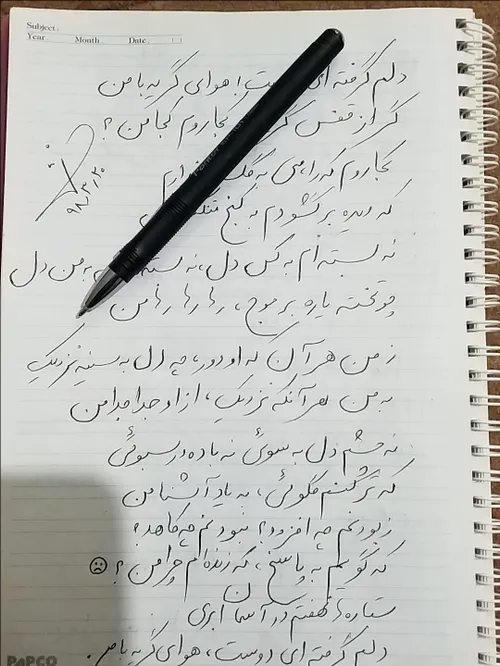 Subject .
Year Month . Date . ( )
دلم گرفته ای ست! هوای گریه با من
گر از قفس کجا روم کجا من ؟
کجا روم که راهی به
که دیده بر گشودم به کنج
نه بسته ام به کس دل، نه بسته به من دل
چو تخته پاره بر موج، رها رها رها من
ز من هر آن که او دور، چو دل به سینه نزدیک
به من هر آنکه نزدیک، از او جدا جدا من
نه چشم دل به سوئی نه باده در سبوئی
که تر کنم گلوئی، به یاد آشنا من
ز بودنم چه افزود؟ نبودنم چه کاهد؟
که گویدم به پاسخ، که زنده ام چرا من ؟
ستاره ها نهفتم در آسمان ابری
دلم گرفته ای دوست، هوای گریه با من .
۹۸/۳/۲۰
PAPCO